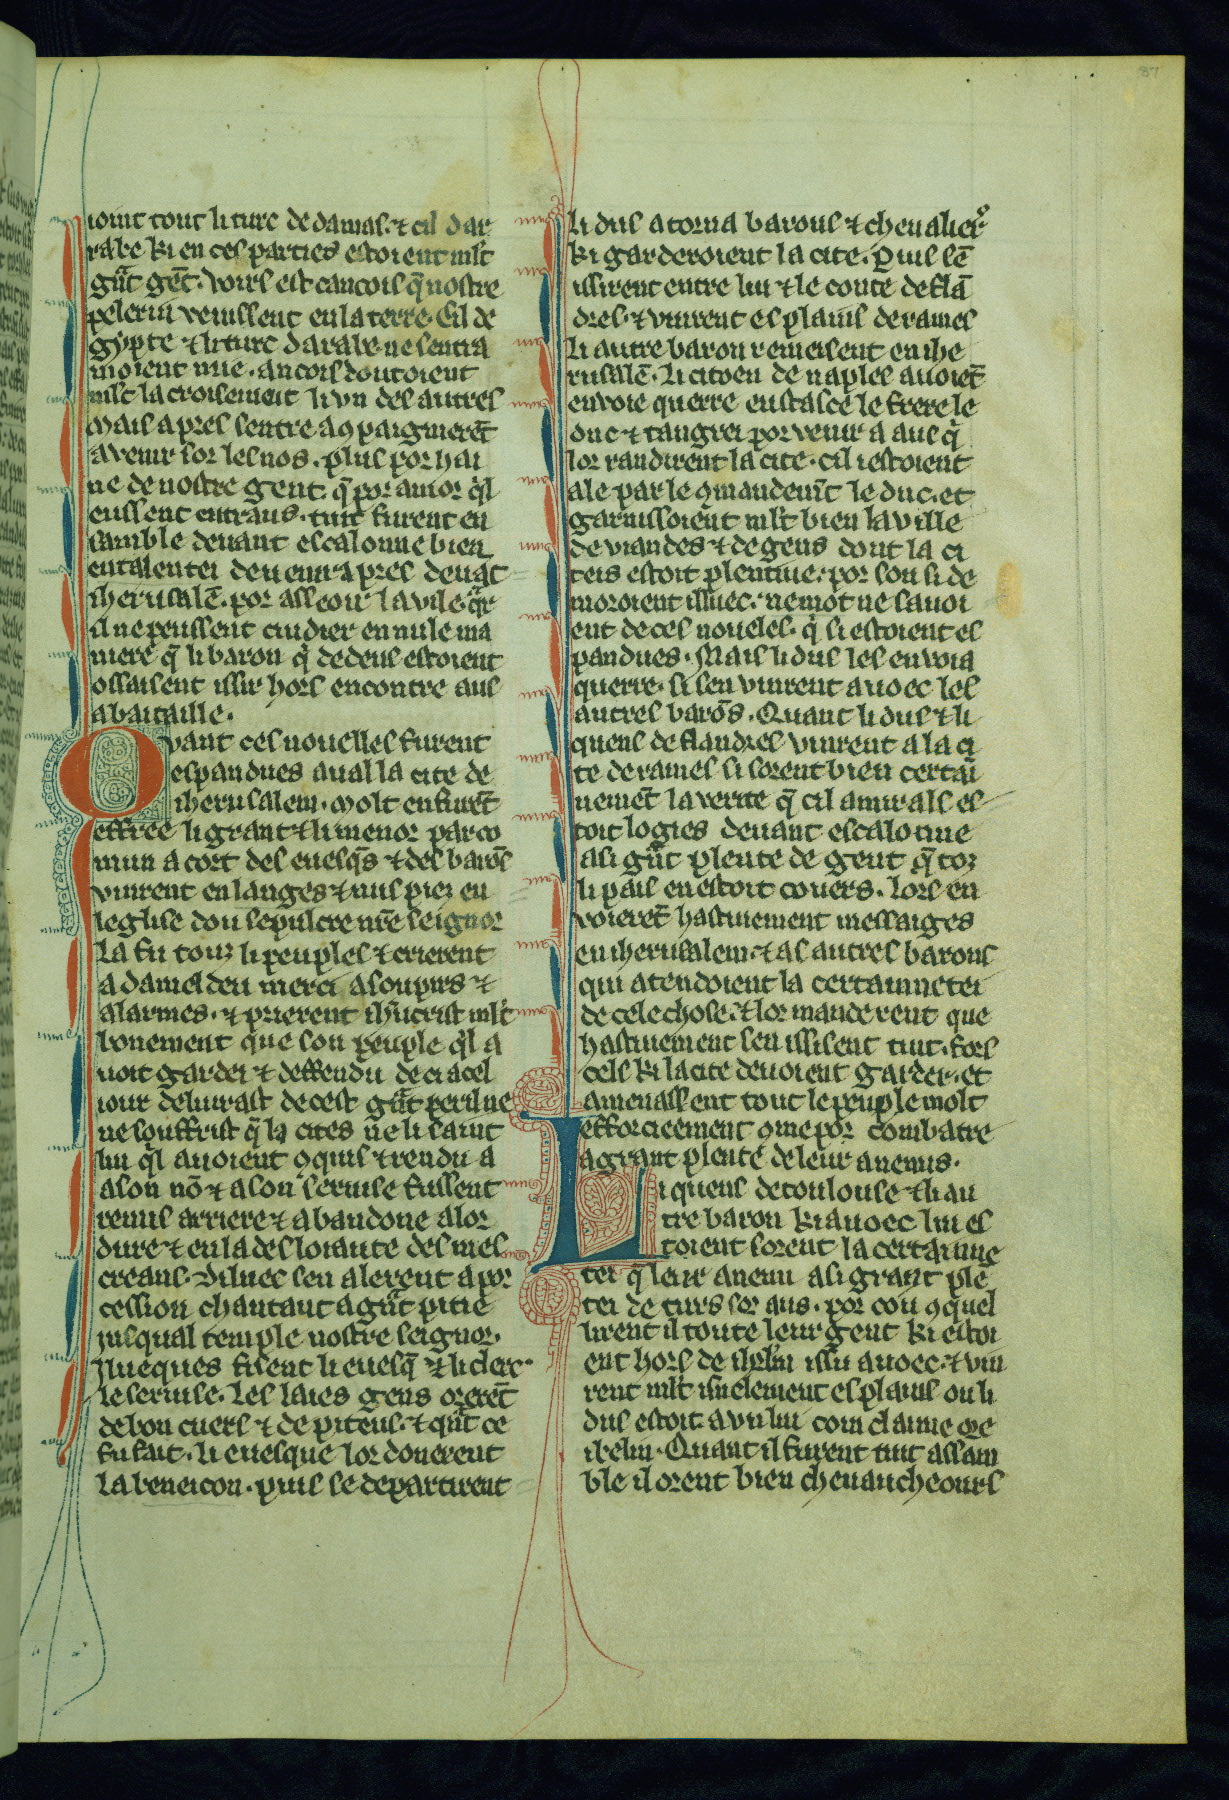 87
ioint tout li turc de damas. ⁊ cil dar
rabe ki en ces parties estoient ml't
gñt gẽt. Voirs est cancois q̃ nostre
pelerin venissent en la terre. Cil de
gypte ⁊ li turc darabe ne sentra
moient mie. ancois doutoient
ml't la croisement li vn des autres
Mais apres sentre aꝯpaignierẽt
a venir sor les nos. plus por hai
ne de nostre gent. q̃ por amor q̉l
eussent entraus. tuit furent en
samble deuant escalonne bien
entalentei de venir apres deuãt
iherusalẽ. por asseoir la vile. q̃r
il ne peussent cuidier en nule ma
niere q̃ li baron q̉ dedens estoient
ossaisent issir hors encontre aus
a bataille.
Qvant ces nouelles furent
espandues aual la cite de
iherusalem. Molt en furẽt
effree li grant ⁊ li menor par co
mun acort des euesq̃s ⁊ des barõs
vinrent en langes ⁊ nus piez en
leglise dou sepulcre nr̃e seignor
La fu touz li peuples ⁊ crierent
a dameldeu merci a soupirs ⁊
a larmes. ⁊ prierent ih'ucrist ml't
bonement que son peuple q̉l a
uoit gardei ⁊ deffendu de ci a cel
iour deliurast de cest gñt peril ne
ne souffrist q̃ la cites ne li saint
liu q̉l auoient ꝯquis ⁊ rendu a
a son nõ ⁊ a son seruise fussent
remis arriere ⁊ abandone a lor
dure ⁊ en la desloiaute des mes
creans. Diluec sen alerent a por
cession chantant a gñt pitie
iusqual temple nostre seignor.
Jlueques fisent li euesq̃ ⁊ li clerc
le seruise. Les laies gens orerẽt
de bon cuers ⁊ de piteus. ⁊ q̃nt ce
fu fait. li euesque lor donerent
la beneicon. puis se departirent
Li dus atorna barons ⁊ cheualiers
ki garderoient la cite. Puis sẽ
issirent entre lui ⁊ le conte de flã
dres. ⁊ vinrent es plains de rames
Li autre baron remeisent en ihe
rusalẽ. Li citoen de naples auoiẽt
enuoie querre eustasce le frere le
duc ⁊ tangrei por venir a aus q̉
lor randirent la cite. cil i estoient
ale par le ꝯmandem̃t le duc. et
garnissoient ml't bien la ville
de viandes ⁊ de gens dont la ci
teis estoit plentiue. por son si de
moroient illuec. ne mot ne sauoi
ent de ces noueles. q̉ si estoient es
pandues. Mais li dus les enuoia
querre. si sen vinrent auoec les
autres barõs. Quant li dus ⁊ li
quens de flandres vinrent a la ci
te de rames si sorent bien certai
nemẽt la verite q̃ cil amirals es
toit logies deuant escalonne
a si gñt plente de gent q̃ toz
li pais en estoit couers. Lors en
voierẽt hastiuement messaiges
en iherusalem. ⁊ as autres barons
qui atendoient la certainnetei
de cele chose. ⁊ lor manderent que
hastiuement sen ississent tuit. fors
cels ki la cite deuoient garder. et
amenassent tout le peuple molt
efforcieement ꝯme por combatre
a grant plente de leur anemis.
Li quens de toulouse ⁊ li au
tre baron ki auoec lui es
toient sorent la certainne
tei q̃ leur anemi a si grant ple
tei de turs sor aus. por cou ꝯquel
lirent il toute leur gent ki estoi
ent hors de ih'rl'm issu auoec. ⁊ vin
rent ml't isnelement es plains ou li
dus estoit. a vn liu com claime
ibelin. Quant il furent tuit assam
ble il orent bien cheuaucheours